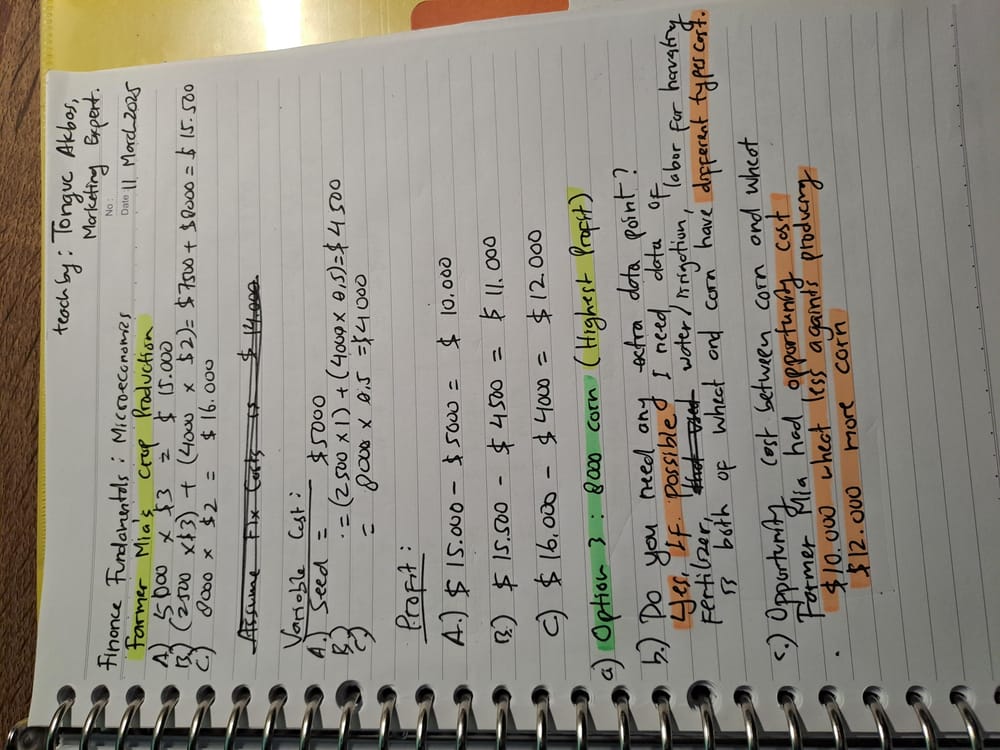 teach by : Tongue Akbas,
Marketing Expert.
No :
Date 11 March 2025
Finance Fundamentals : Microeconomics
Farmer Mia's Crop Production
A) 5000 x $3 = $ 15.000
B) (2500 x $3) + (4000 x $2) = $7500 + $8000 = $15.500
C.) 8000 x $2 = $16.000
Assume Fix Costs is $ 14.000
Variable Cost :
A.) Seed = $5000
B.) = (2500 x 1) + (4000 x 0,5) = $4500
C) = 8000 x 0,5 = $4000
Profit :
A.) $ 15.000 - $5000 = $ 10.000
B.) $ 15.500 - $ 4500 = $ 11.000
C) $ 16.000 - $ 4000 = $ 12.000
a) Option 3 : 8000 corn (Highest Profit)
b.) Do you need any extra data point?
Yes, If possible I need data of
Fertilizer, water / Irrigation, labor for harvesting
Is both of wheat and corn have different types cost.
c.) Opportunity cost between corn and wheat
Farmer Mia had opportunity cost
$10.000 wheat less againts producing
$12.000 more corn
.